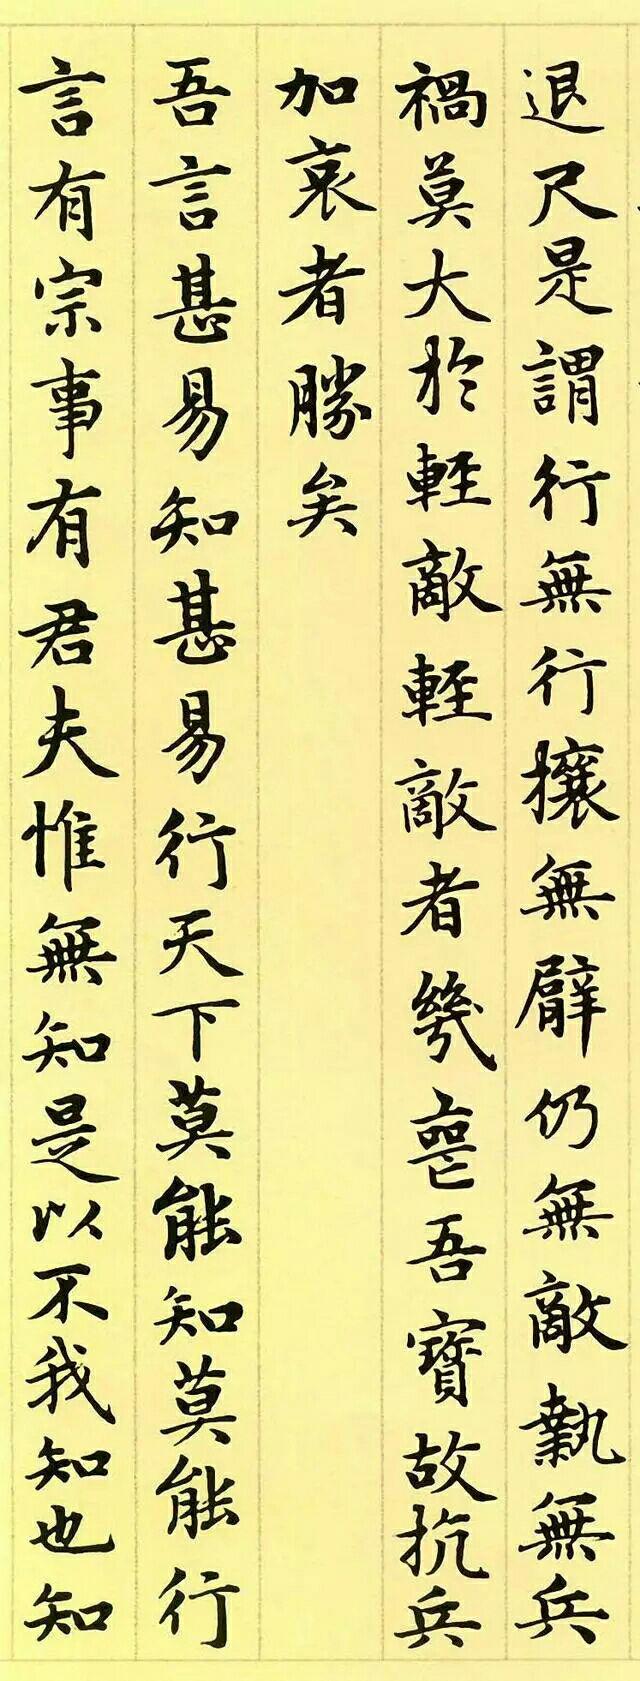 退尺是謂行無行攘無臂仍無敵執無兵
禍莫大於輕敵輕敵者幾喪吾寶故抗兵
加哀者勝矣
吾言甚易知甚易行天下莫能知莫能行
言有宗事有君夫惟無知是以不我知也知